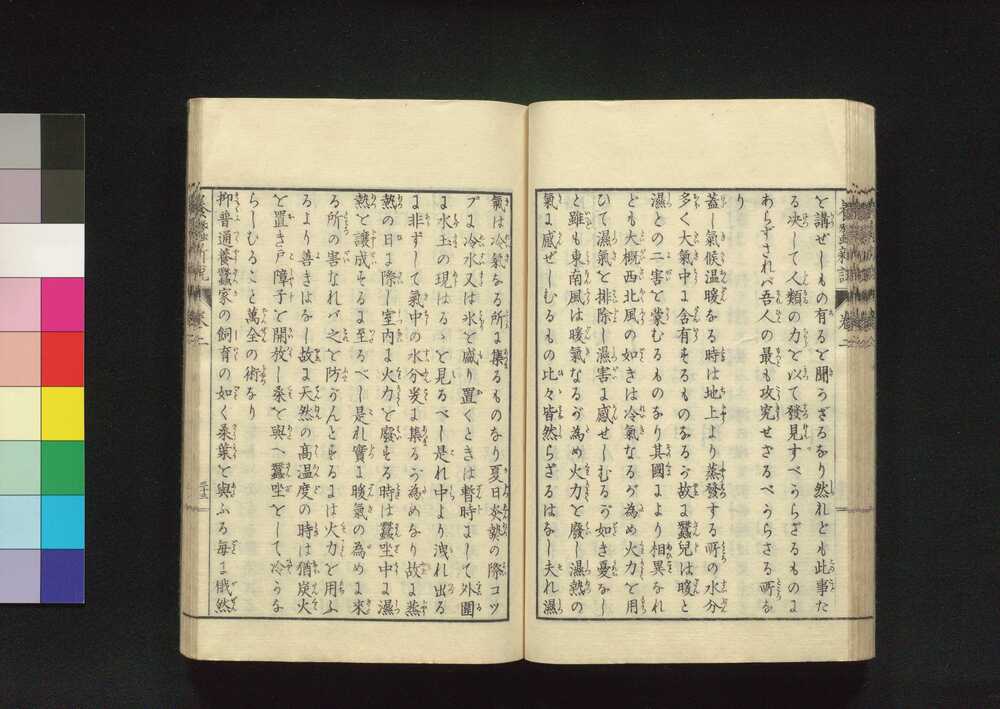 を講ぜしもの有るを聞かざるなり然れども此事た
る决して人類の力を以て發見すべからざるものに
あらずされバ吾人の最も攻究せざるべからざる所な
り
蓋し氣候温暖なる時は地上より蒸發する所の水分
多く大氣中に含有するものなるが故に蠶兒は暖と
濕との二害を蒙むるものなり其國により相異なれ
ども大概西北風の如きは冷氣なるが為め火力を用
ひて濕氣を排除し濕害に感せしむるが如き憂なし
と雖も東南風は暖氣なるが為め火力を廢し濕熱の
氣に感ぜしむるもの比々皆然らざるはなし夫れ濕
氣は冷氣なる所に集るものなり夏日炎熱の際コツ
プに冷水又は氷を盛り置くときは暫時にして外圍
に水玉の現はるゝを見るべし是れ中より洩れ出る
に非ずして氣中の水分爰に集るが為めなり故に蒸
熱の日に際し室内に火力を廢する時は蠶坐中に濕
熱を讓成するに至るべし是れ實に暖氣の為めに來
る所の害なれバ之を防がんとするには火力を用ふ
るより善きはなし故に天然の高温度の時は猶炭火
を置き戸障子を開放し桑を與へ蠶坐をして冷かな
らしむること萬全の術なり
抑普通養蠶家の飼育の如く桑葉を與ふる毎に俄然
養蠶新説 卷二
三十五